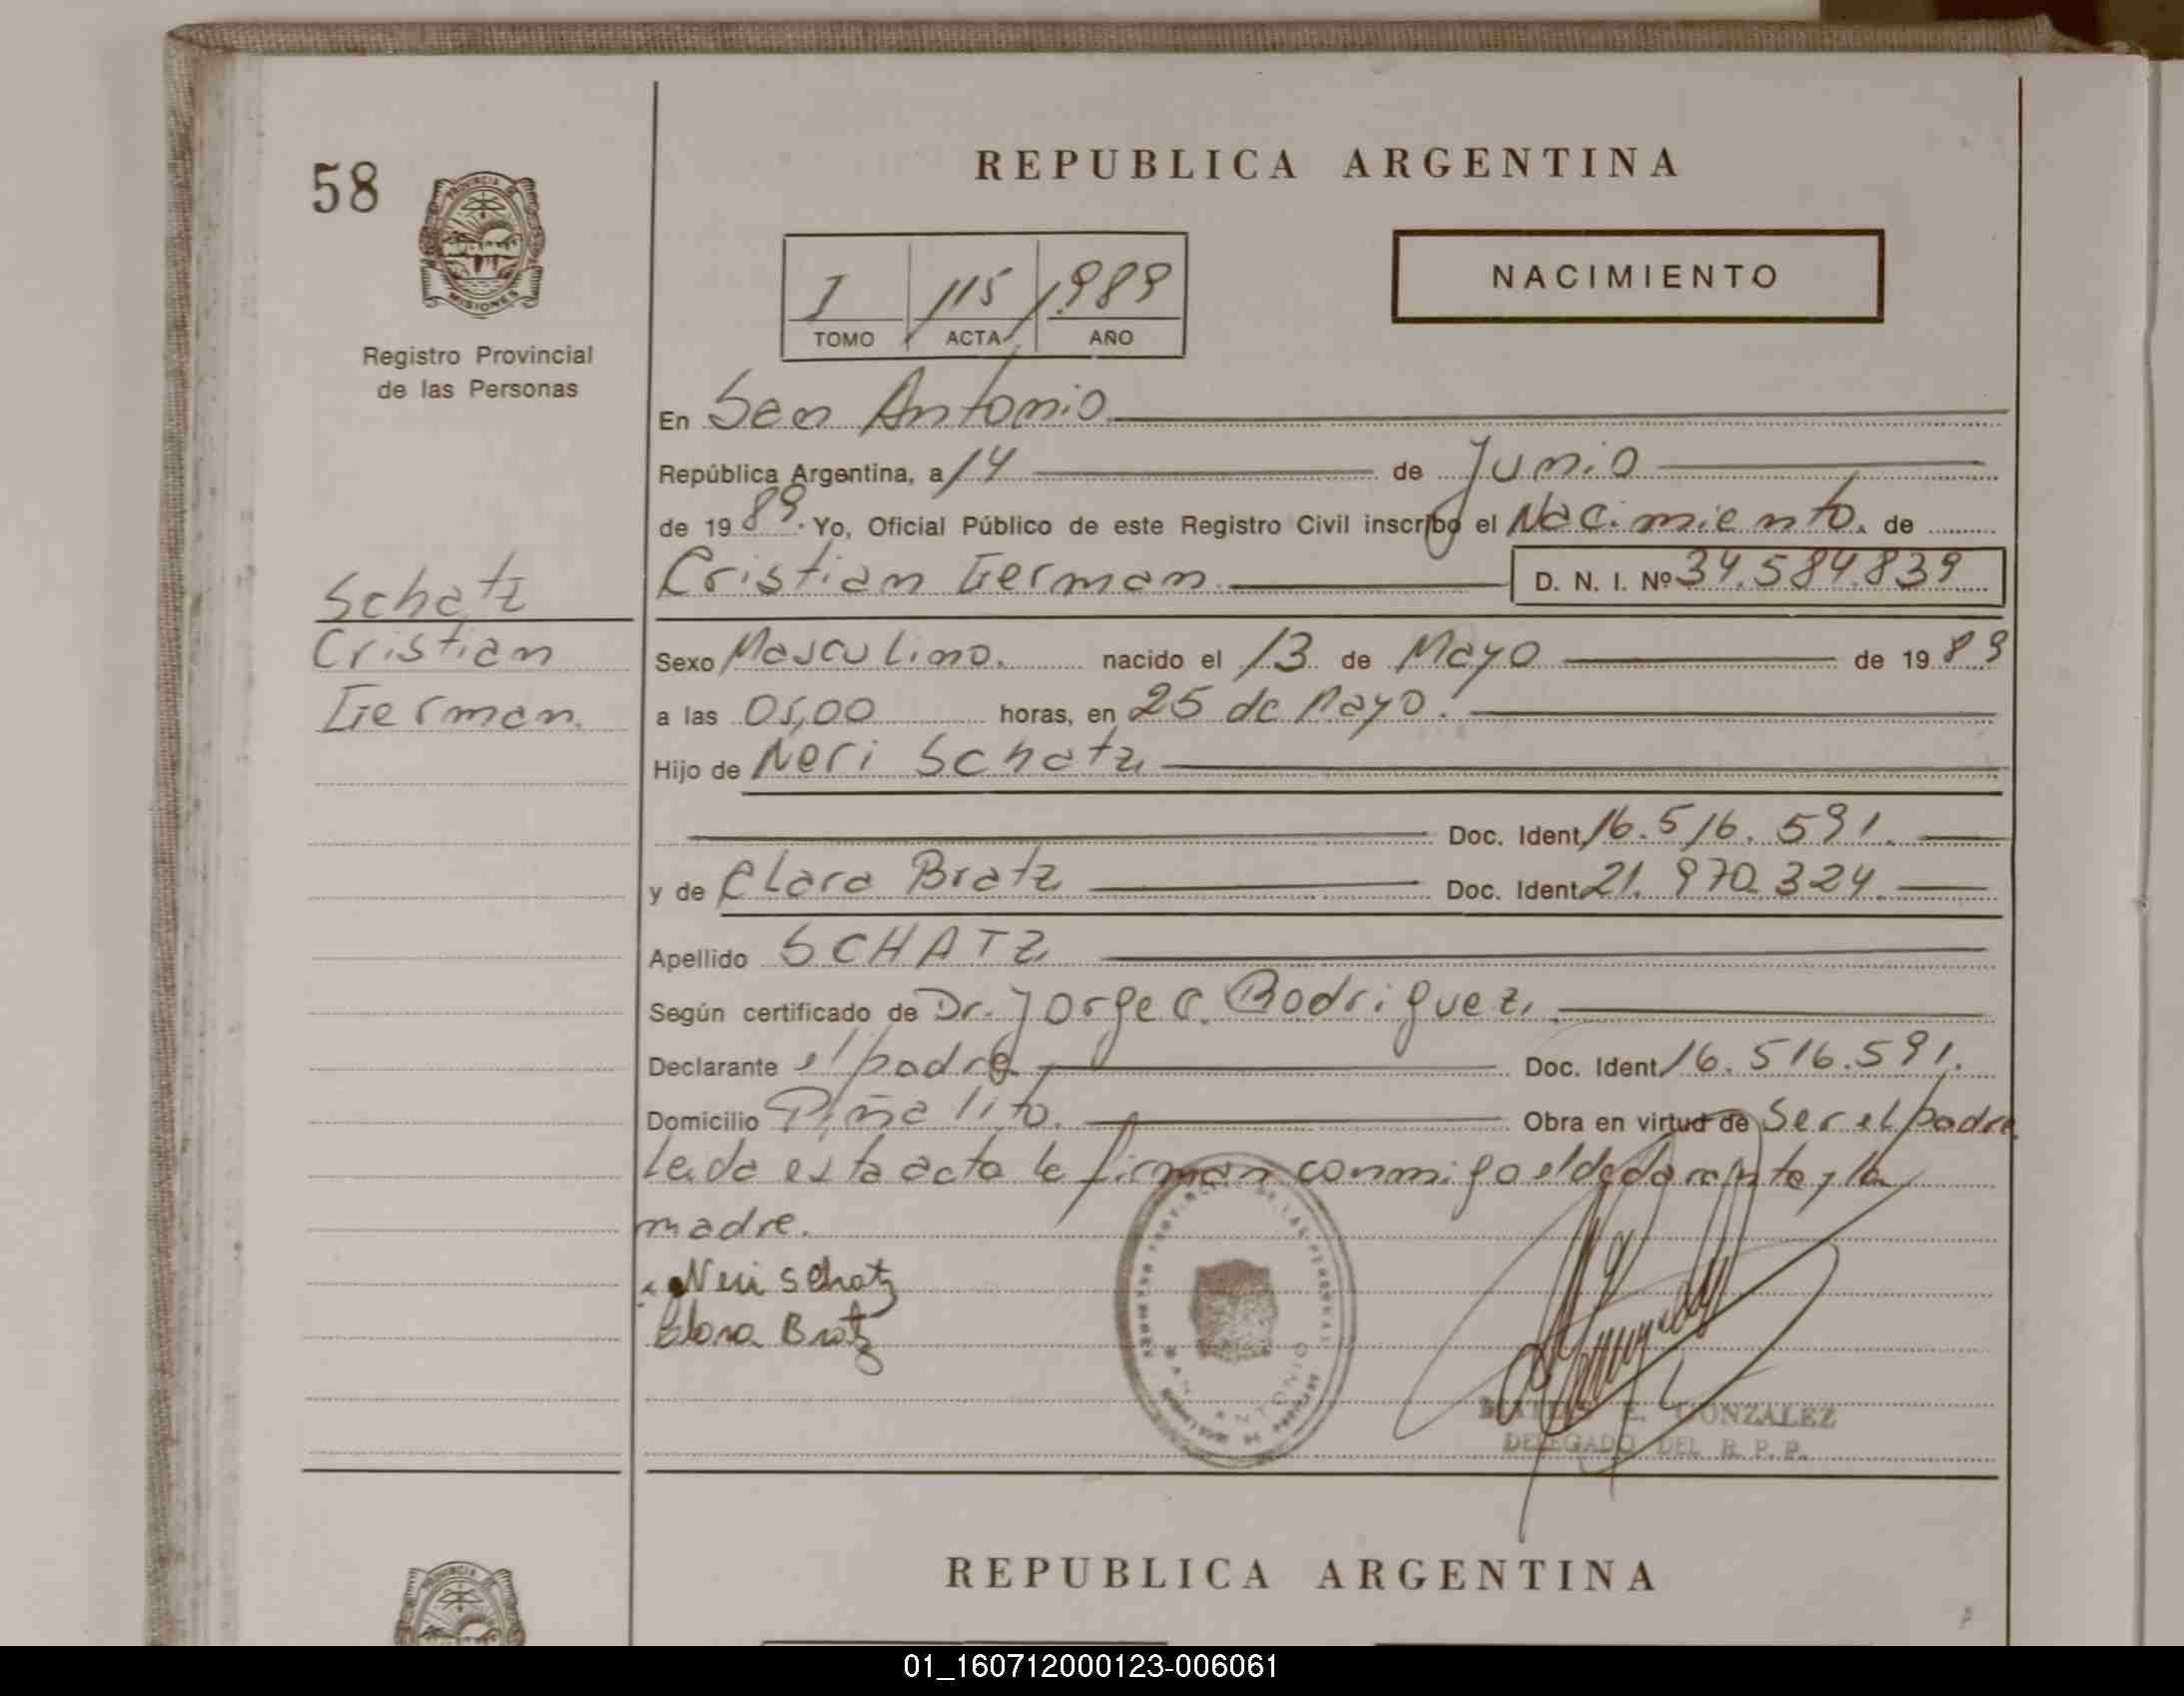 58
PROVINCIA DE
MISIONES
Registro Provincial
de las Personas
REPUBLICA ARGENTINA
I 115 1.989
TOMO ACTA AÑO
NACIMIENTO
En San Antonio
República Argentina, a 14 de Junio
de 1989. Yo, Oficial Público de este Registro Civil inscribo el Nacimiento. de
Cristian German. D. N. I. Nº 34.584.839
Schatz
Cristian
German.
Sexo Masculino. nacido el 13 de Mayo de 1989
a las 05,00 horas, en 25 de Mayo.
Hijo de Neri Schatz
Doc. Ident. 16.516.591.
y de Clara Bratz Doc. Ident. 21.970.324.
Apellido SCHATZ
Según certificado de Dr. Jorge C. Rodriguez.
Declarante el padre Doc. Ident. 16.516.591.
Domicilio Piñalito. Obra en virtud de Ser el padre.
Leida esta acta la firman conmigo el declarante y la
madre.
Neri Schatz
Clara Bratz
SAN ANTONIO
E. GONZALEZ
DELEGADO DEL R. P. P.
REPUBLICA ARGENTINA
01_160712000123-006061